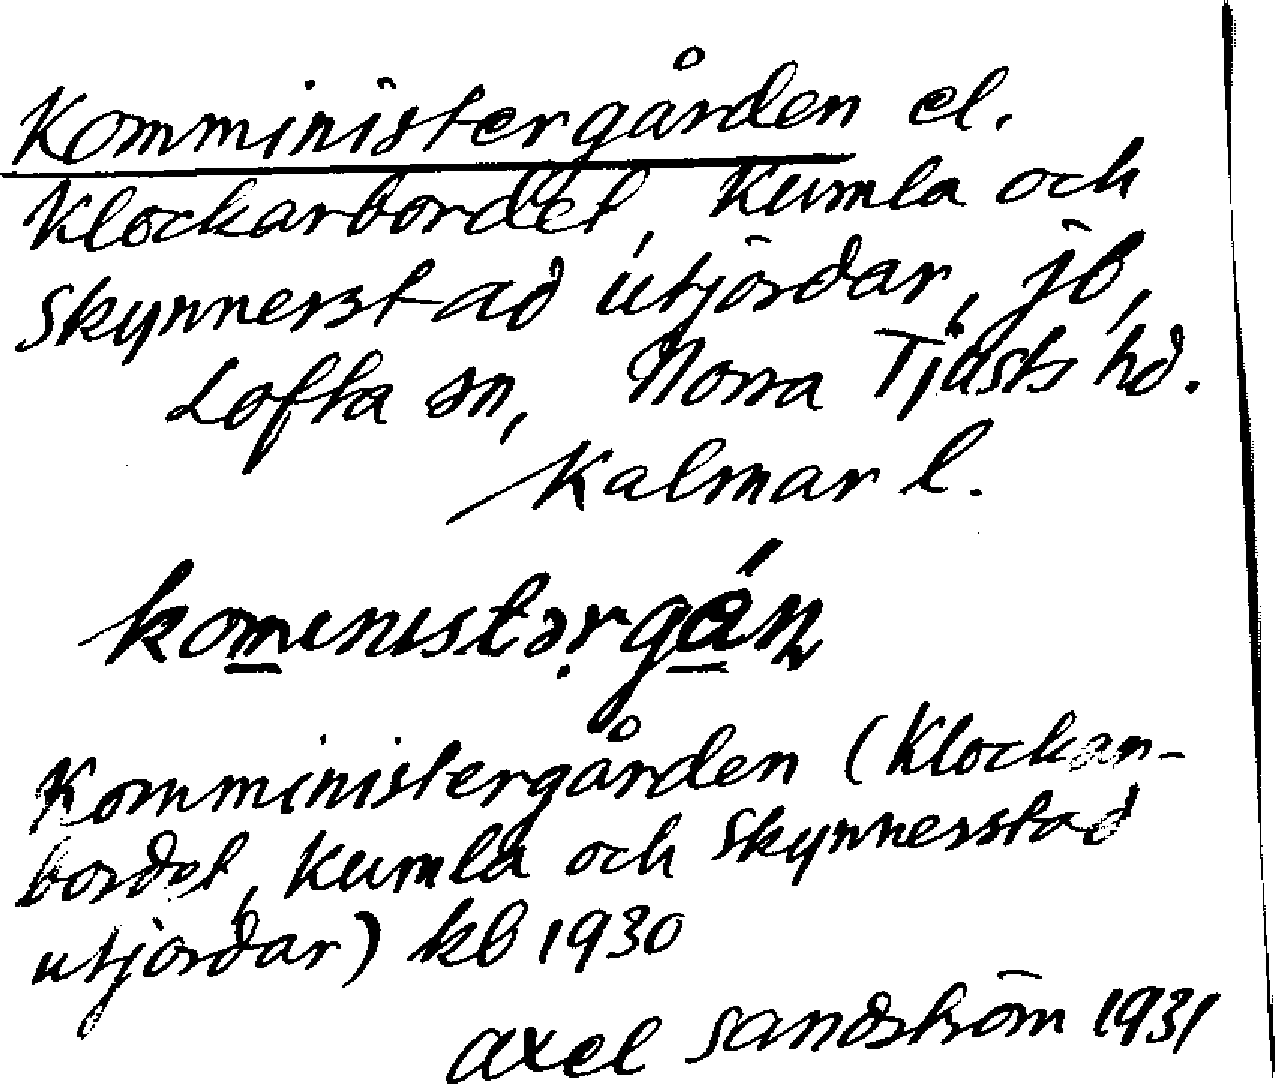 Komministergården el.
Klockarbordet, Kumla och
Skynnerstad utjordar, jb,
Lofta sn, Norra Tjusts hd.
Kalmar l.
Komministergården (Klockar-
bordet, Kumla och Skynnerstad
utjordar) kb 1930
Axel Sandström 1931